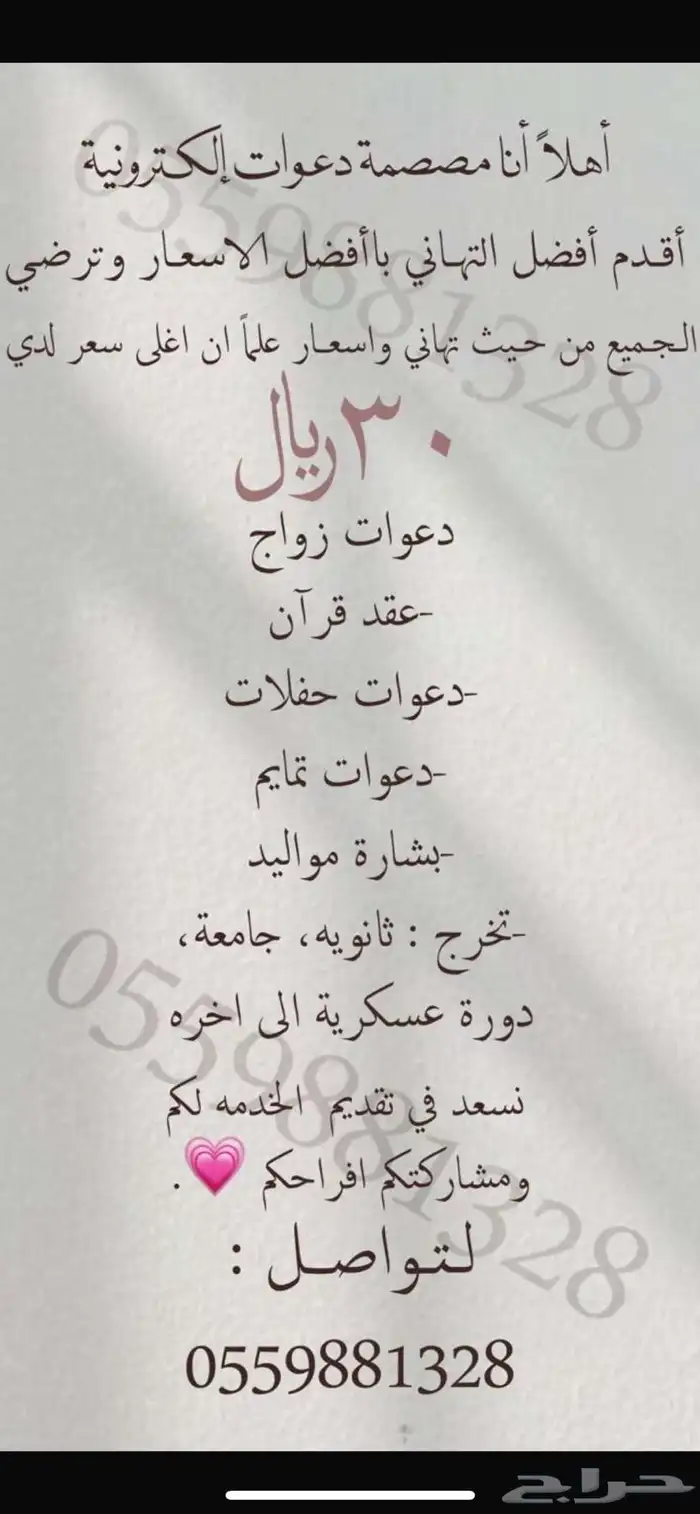 أهلاً أنا مصصمة دعوات إلكترونية
أقدم أفضل التهاني باأفضل الاسعار وترضي
الجميع من حيث تهاني واسعار علماً ان اغلى سعر لدي
٣٠ ريال
دعوات زواج
-عقد قرآن
-دعوات حفلات
-دعوات تمايم
-بشارة مواليد
-تخرج : ثانويه، جامعة،
دورة عسكرية الى اخره
نسعد في تقديم الخدمه لكم
ومشاركتكم افراحكم 💗.
لتواصل :
0559881328
0559881328
0559881328
حراج